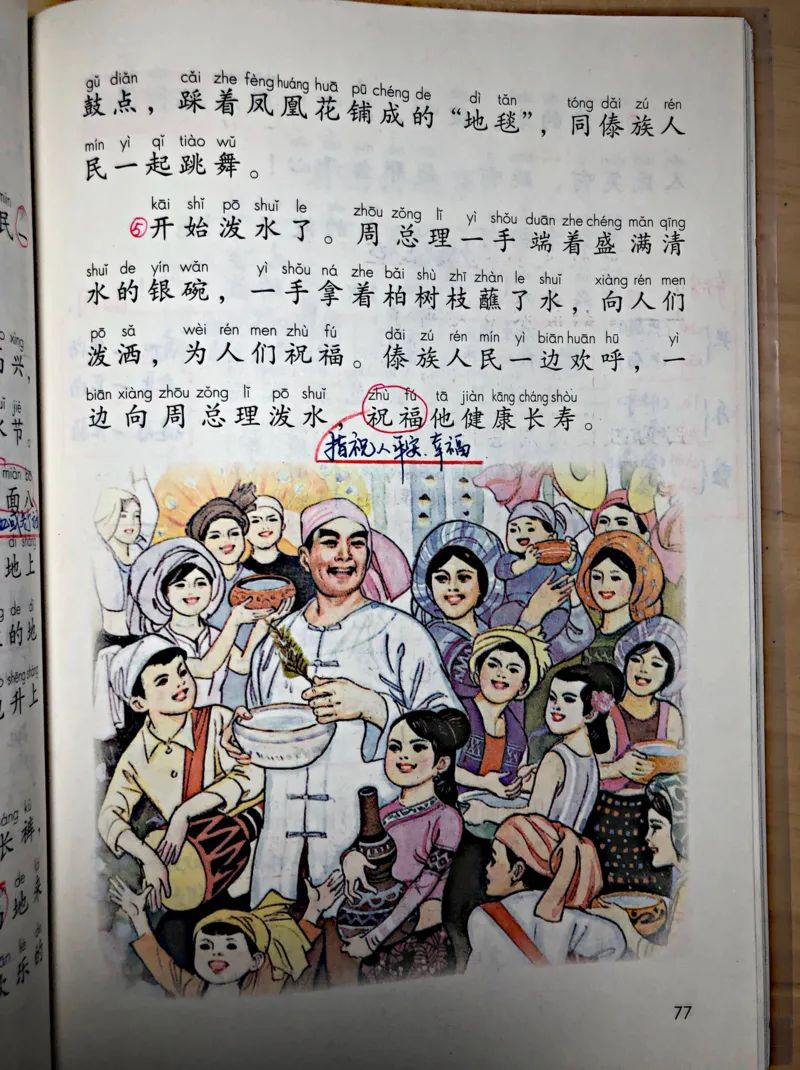 gǔ diǎn cǎi zhe fèng huáng huā pū chéng de dì tǎn tóng dǎi zú rén
鼓点，踩着凤凰花铺成的“地毯”，同傣族人
mín yì qǐ tiào wǔ
民一起跳舞。
kāi shǐ pō shuǐ le zhōu zǒng lǐ yì shǒu duān zhe chéng mǎn qīng
⑤开始泼水了。周总理一手端着盛满清
shuǐ de yín wǎn yì shǒu ná zhe bǎi shù zhī zhàn le shuǐ xiàng rén men
水的银碗，一手拿着柏树枝蘸了水，向人们
pō sǎ wèi rén men zhù fú dǎi zú rén mín yì biān huān hū yì
泼洒，为人们祝福。傣族人民一边欢呼，一
biān xiàng zhōu zǒng lǐ pō shuǐ zhù fú tā jiàn kāng cháng shòu
边向周总理泼水，祝福他健康长寿。
指祝人平安、幸福
77
mín
民一
xìng
兴，
jié
节。
miàn bā
面八
地上
de dì
的地
shēng shàng
升上
长裤，
de lái
地来
乐的